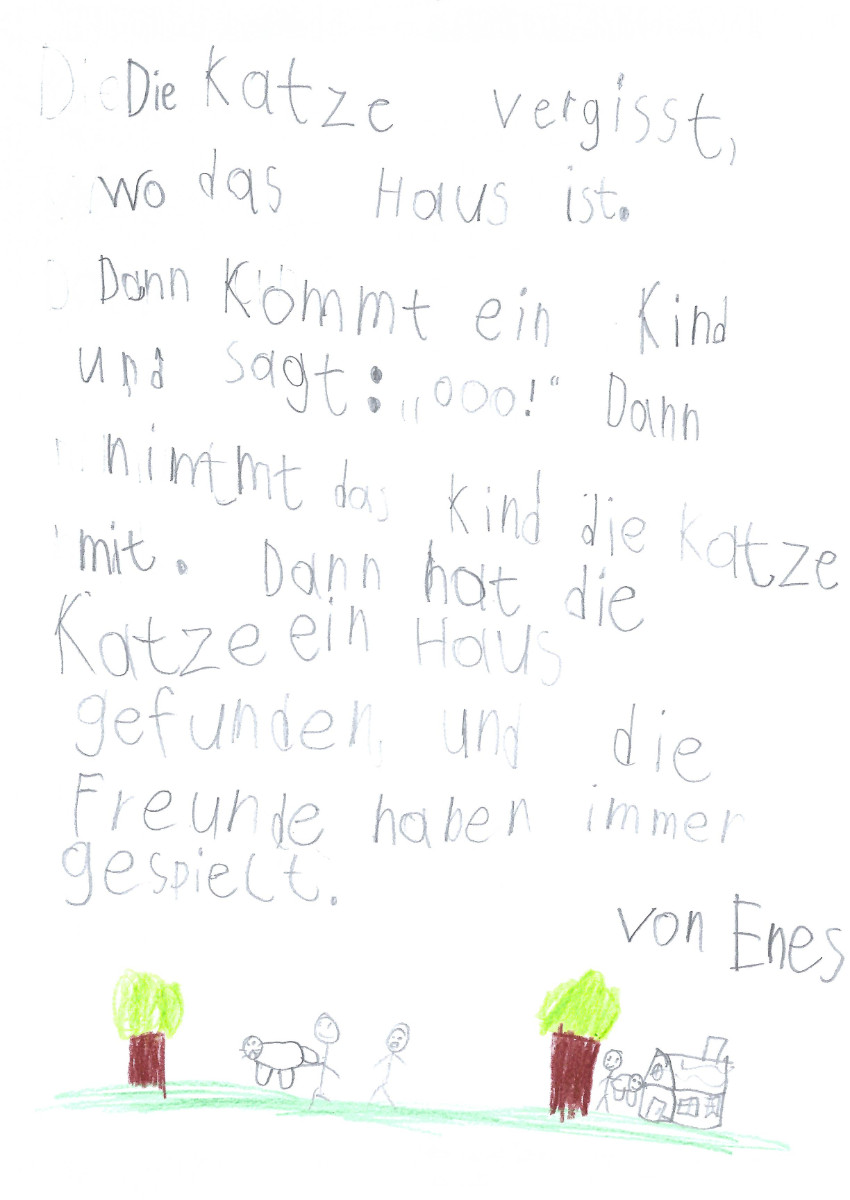 Die Katze vergisst,
wo das Haus ist.
Dann kommt ein Kind
und sagt: „ooo!“ Dann
nimmt das Kind die Katze
mit. Dann hat die
Katze ein Haus
gefunden, und die
Freunde haben immer
gespielt.
von Enes